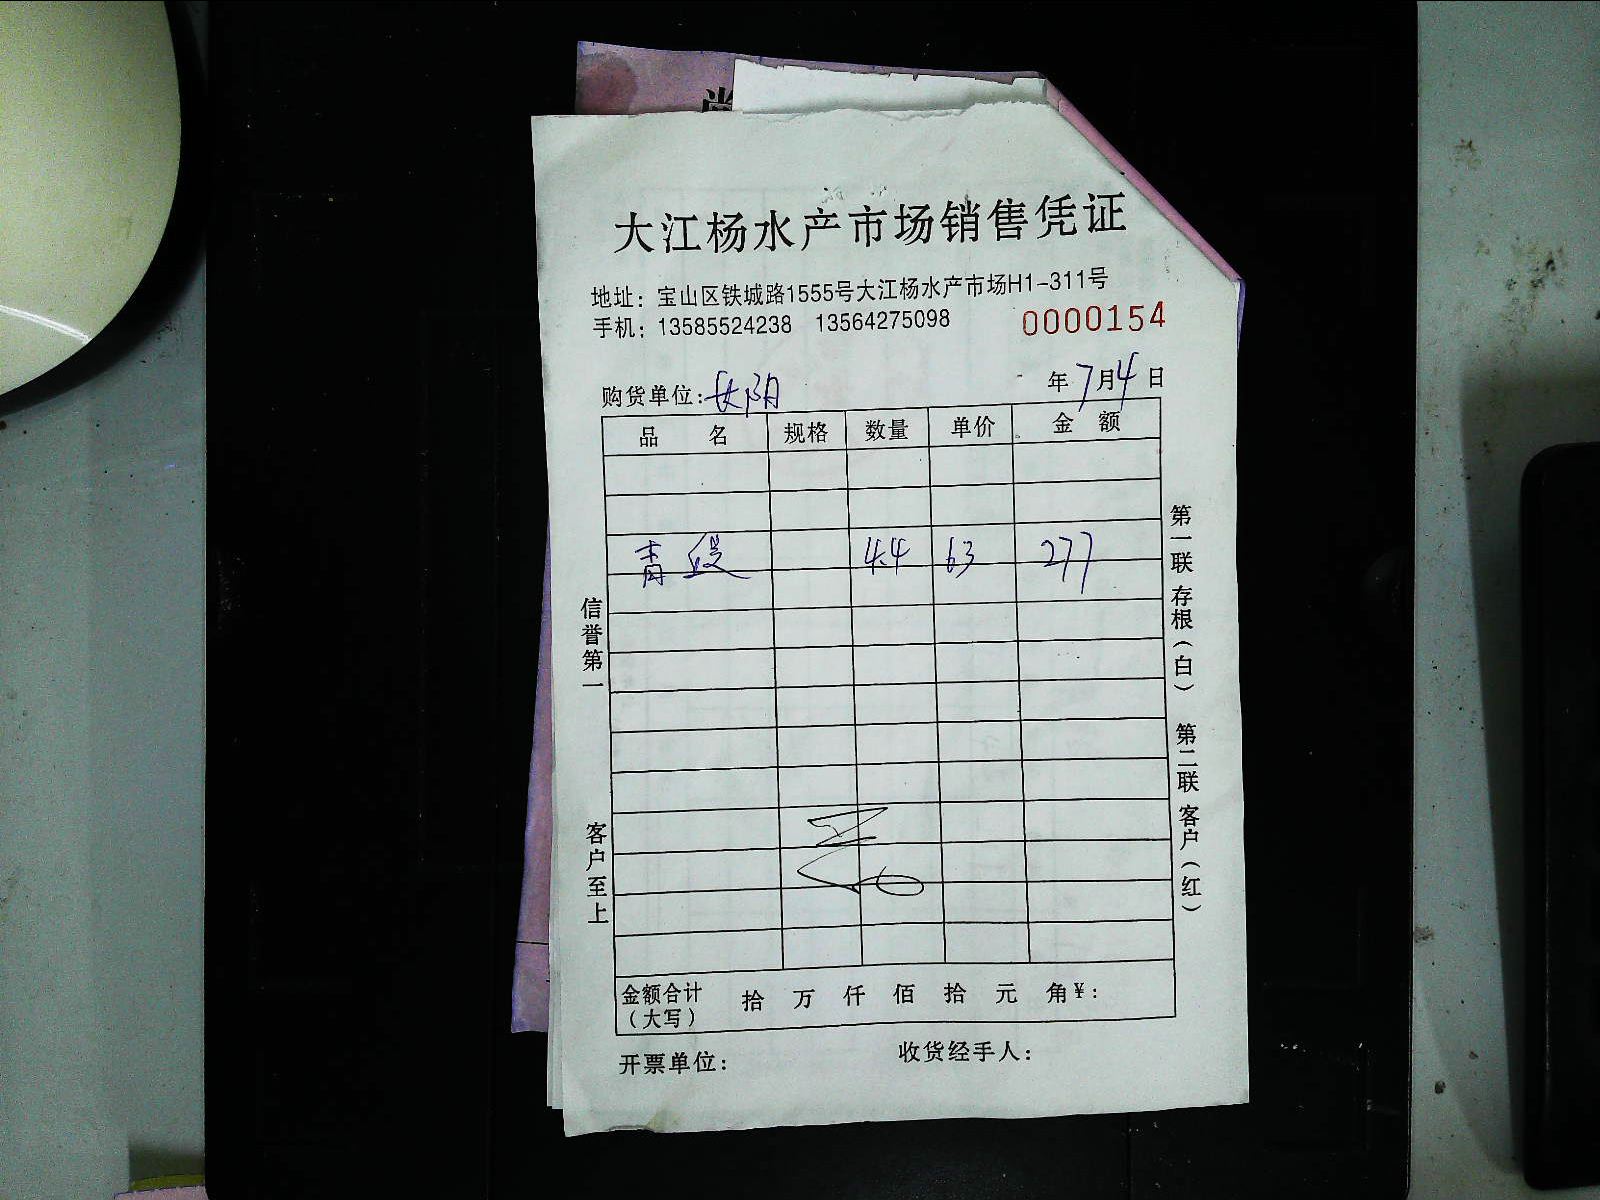 大江杨水产市场销售凭证
地址：宝山区铁城路1555号大江杨水产市场H1-311号
手机：13585524238 13564275098 0000154
购货单位：长阳 年7月4日
品名 规格 数量 单价 金额
青 4.4 63 277
信誉第一
客户至上
第一联 存根（白） 第二联 客户（红）
金额合计（大写） 拾 万 仟 佰 拾 元 角 ¥：
开票单位： 收货经手人：